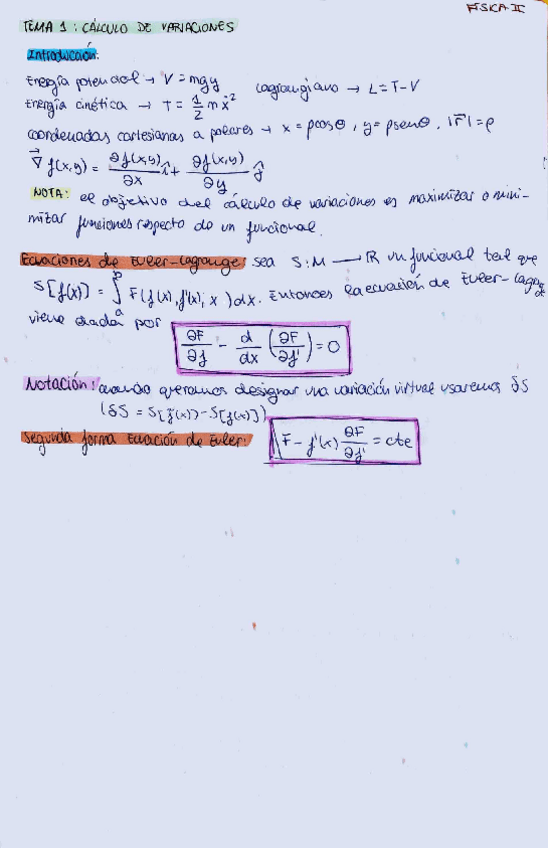 FISICA II
TEMA 1: CÁLCULO DE VARIACIONES
Introducción:
Energía potencial → V = mgy
Lagrangiano → L = T - V
Energía cinética → T = 1/2 m ẋ²
coordenadas cartesianas a polares → x = ρcosθ, y = ρsenθ. |r⃗| = ρ
∇⃗ f(x,y) = ∂f(x,y)/∂x î + ∂f(x,y)/∂y ĵ
NOTA: el objetivo del cálculo de variaciones es maximizar o mini-
mizar funciones respecto de un funcional.
Ecuaciones de Euler-Lagrange: sea S: M → ℝ un funcional tal que
S[f(x)] = ∫ₐᵇ F(f(x), f'(x); x) dx. Entonces la ecuación de Euler-Lagrange
viene dada por ∂F/∂f - d/dx (∂F/∂f') = 0
Notación: cuando queramos designar una variación virtual usaremos δS
(δS = S[f̄(x)] - S[f(x)])
Segunda forma Ecuación de Euler: F - f'(x) ∂F/∂f' = cte